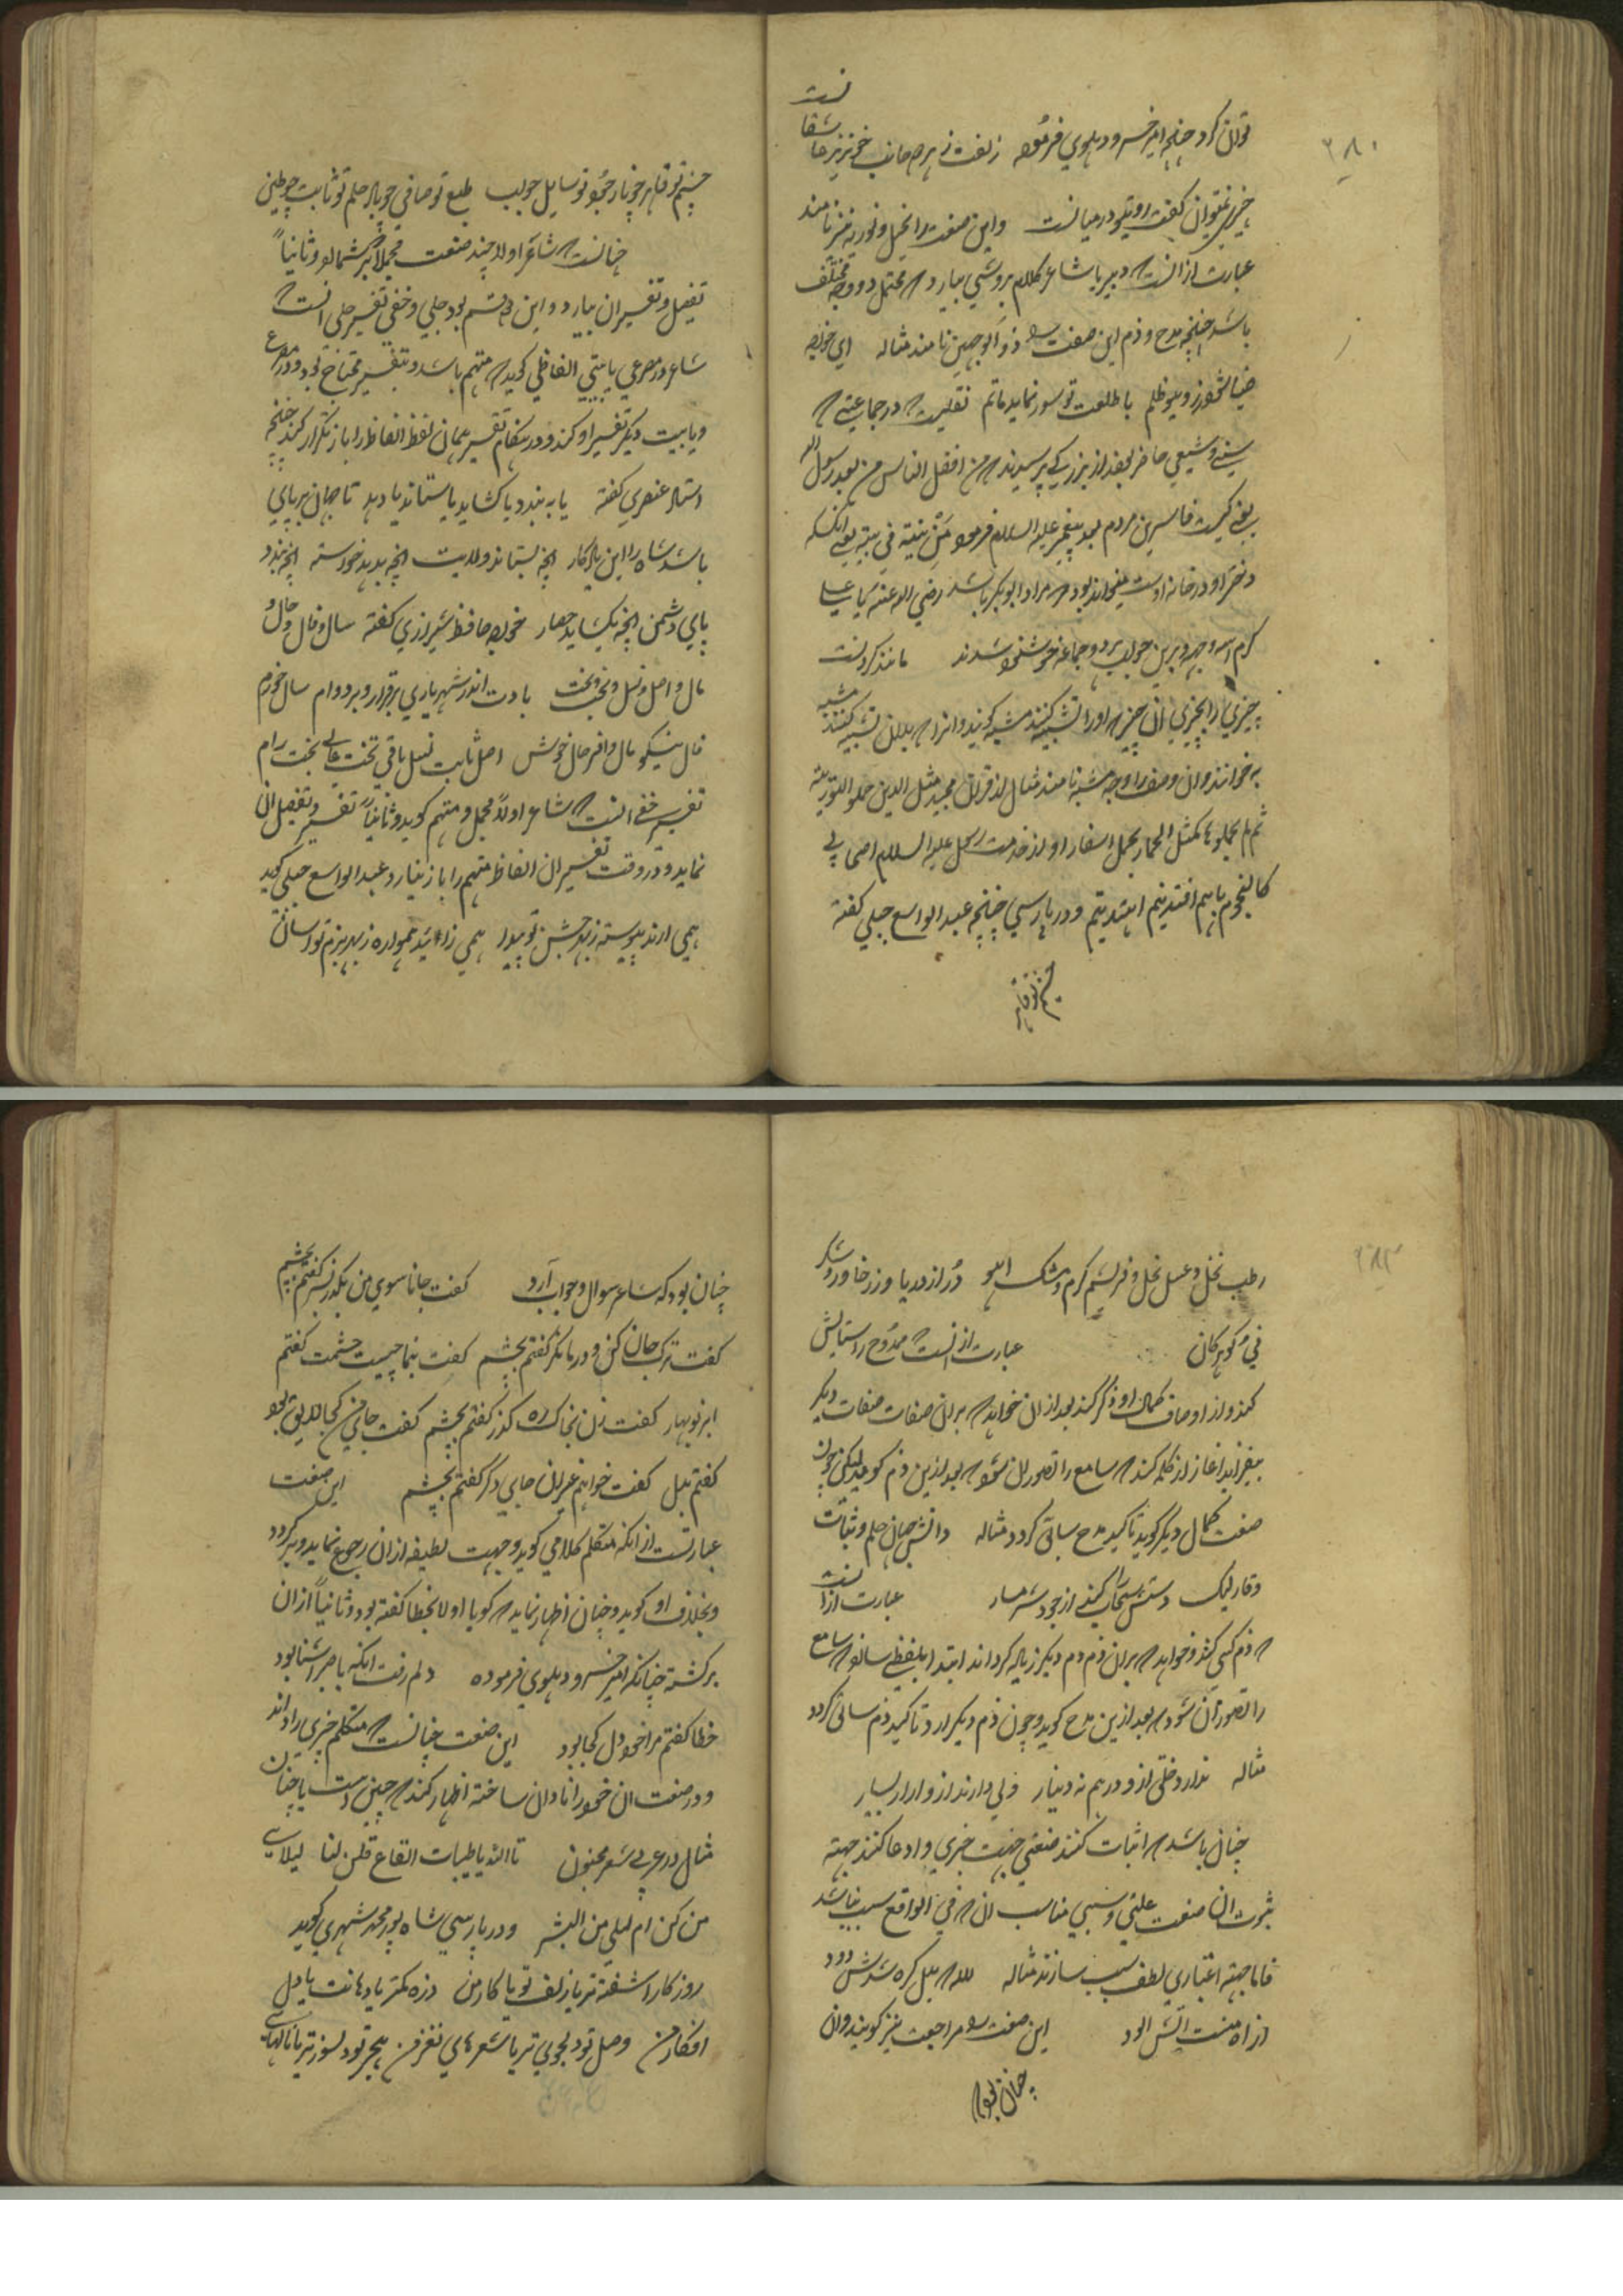 ۲۸۰
توان کرد چنانچه امیر خسرو دهلوی فرموده زلفت ز هر دو جانب خونریز عاشقانست
چیزی نمیتوان گفت روی تو در میانست واین صنعت را تخییل و توریه نیز نامند
عبارت از انست که دبیر یا شاعر کلام بروشی بیارد که محتمل دو وجه مختلف
باشد چنانچه مدح و ذم این صنعت را ذو الوجهین نامند مثاله ای خواجه
ضیا شود ز روی تو ظلم با طلعت تو سور نماید ماتم نقلیست که در جماعتی که
سنی و شیعی حاضر بودند از بزرگی پرسیدند که من افضل الناس من بعد رسول الله
یعنی کیست فاضلترین مردم بعد پیغمبر علیه السلام فرمود من بنته فی بیته یعنی انکسکه
دختر او در خانه اوست میتواند بود که مراد ابوبکر باشد رضی الله عنه یا علی
کرم الله وجهه و برین جواب هر دو جماعه خوشنود شدند مانند کردنست
چیزی را بچیزی ان چیز که اورا تشبیه کنند مشبه گویند و انرا که بدان تشبیه کنند مشبه
به خوانند و ان وصف را وجه مشبه نامند مثال از قران مجید مثل الذین حملوا التوریة
ثم لم یحملوها کمثل الحمار یحمل اسفارا و از حدیث رسول علیه السلام اصحابی
کالنجوم بایهم اقتدیتم اهتدیتم و در پارسی چنانچه عبد الواسع جبلی گفته
چشم تو قاهر
چشم تو قاهر چو نار جود تو سایل چو آب طبع تو صافی چو باد حلم تو ثابت چو طین
چنانست که شاعر اولا چند صنعت مجملا برشمارد و ثانیاً
تفصیل و تفسیر ان بیارد و این دو قسم بود جلی و خفی تفسیر جلی انست که
شاعر در مصرعی یا بیتی الفاظی گوید که متهم باشد و بتفسیر محتاج بود و در مصرع
و یا بیت دیگر تفسیر او کند و در هنگام تفسیر همان لفظ الفاظ را باز تکرار کند چنانچه
استاد عنصری گفته یا به بندد یا گشاید یا ستاند یا دهد تا جهان بر پای
باشد شاه را این یادگار انچه بستاند ولایت انچه بدهد خواسته انچه بندد
پای دشمن انچه بگشاید حصار خواجه حافظ شیرازی گفته سال و فال و حال و
مال و اصل و نسل و تخت و بخت بادت اندر شهریاری برقرار و بر دوام سال خرم
فال نیکو مال وافر حال خوش اصل ثابت نسل باقی تخت عالی بخت رام
تفسیر خفی انست که شاعر اولاً مجمل و متهم گوید و ثانیاً تفسیر و تفصیل ان
نماید و در وقت تفسیر ان الفاظ متهم را باز نیارد عبد الواسع جبلی گوید
همی ارند پیوسته ز بهر جشن تو پیدا همی زاید همواره ز بهر بزم تو اسان
۲۸۲
رطب نخل و عسل نحل و بریشم کرم و مشک اهو در از دریا و زر خارا و شکر
نی و گوهر کان عبارت از انست که ممدوح را ستایش
کند و از اوصاف کمال او ذکر کند بعد از ان خواهد که بران صفات صفات دیگر
بیفزاید اغاز از کلمه کند که سامع را تصور ان شود که بعد ازین ذم گوید لیکن چون
صفت کمال دیگر گوید تاکید مدح سابق گردد مثاله دانش جهان حلم و ثبات
وقار لیک دستش سحاب را کند از جود شرمسار عبارت از انست
که ذم کسی کند و خواهد که بران ذم ذم دیگر زیاده گرداند ابتدا بلفظی سازد که سامع
را تصور ان شود که بعد ازین مدح گوید و چون ذم دیگر ارد تاکید ذم سابق گردد
مثاله ندارد خلق ازو درهم نه دینار ولی دارند ازو ازار بسیار
چنان باشد که اثبات کنند صنعتی جهت چیزی و ادعا کنند جهته
ثبوت ان صنعت علتی و سببی مناسب ان که فی الواقع سبب نباشد
فاما جهته اعتباری لطف سبب سازند مثاله
از اه منست اتش الود این صنعت را مراجعت نیز گویند و ان
چنان بود که
چنان بود که شاعر سوال و جواب آرد گفت جانا سوی من بگذر بسر گفتم بچشم
گفت ترک جان کن و در ما نگر گفتم بچشم گفت بنما چیست چشمت گفتم
ابر نوبهار گفت زن بخاک ره گذر گفتم بچشم گفت جای من کجا لایق بود
گفتم بدل گفت خواهم غیر ان جای دگر گفتم بچشم این صنعت
عبارتست از انکه متکلم کلامی گوید و جهت لطیفه از ان رجوع نماید و برگردد
و بخلاف او گوید و چنان اظهار نماید که گویا اولا بخطا گفته بود و ثانیاً از ان
برگشته چنانکه امیر خسرو دهلوی فرموده دلم رفت انکه با صبر اشنا بود
خطا گفتم مرا خود دل کجا بود این صنعت چنانست که متکلم چیزی را داند
و در صنعت ان خود را نادان ساخته اظهار کند که چنین است یا چنان
مثال در عربی شعر مجنون تالله یا ظبیات القاع قلن لنا لیلای
منکن ام لیلی من البشر و در پارسی شاه پور محمد شهری گوید
روزگار اشفته تر یا زلف تو یا کار من ذره کمتر یا دهانت یا دل
افکار من وصل تو دلجوی تر یا شعرهای نغز من هجر تو دلسوز تر یا نالهای